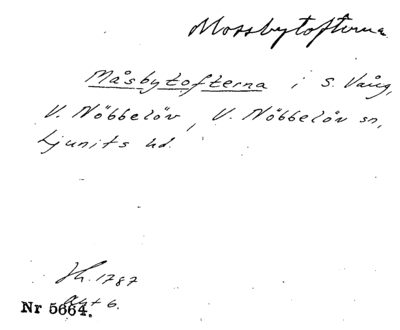 Mossbytofterna
Måsbytofterna i S. Vång,
V. Nöbbelöv, V. Nöbbelöv sn,
Ljunits hd.
Sk. 1787
Akt 6.
Nr 5664.